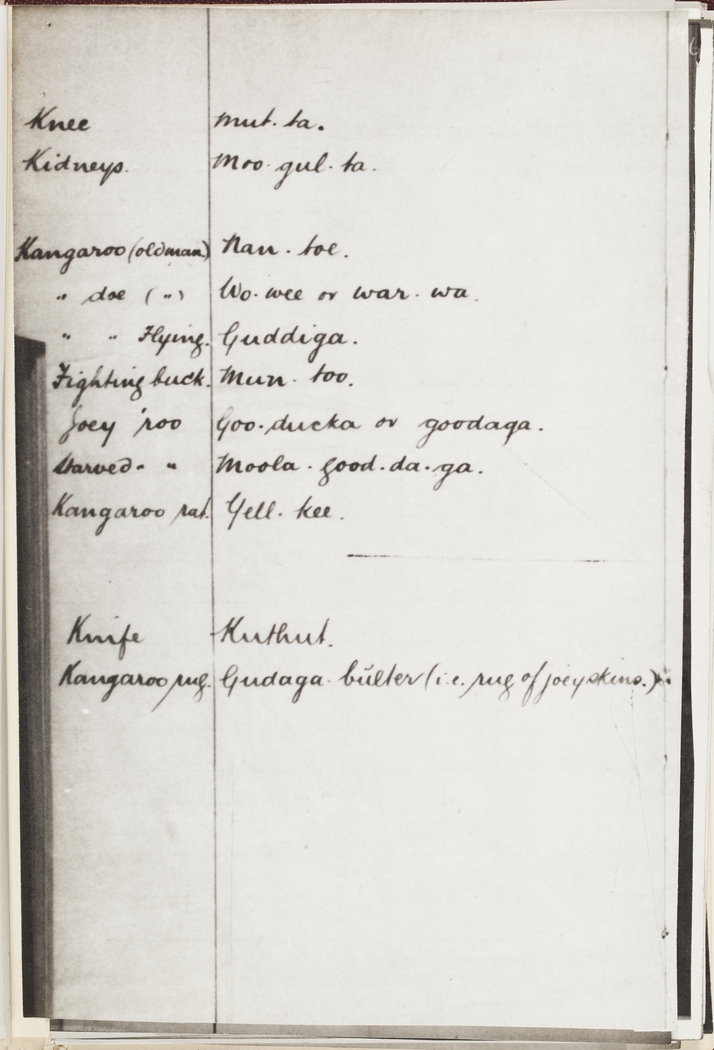 Knee mut. ta.
Kidneys. Moo. gul. ta.
Kangaroo (oldman) Nan. toe.
" doe (") Wo. wee or war. wa.
" " Flying. Guddiga.
Fighting buck. Mun. too.
Joey 'roo Goo. ducka or goodaga.
Starved " " Moola. good. da. ga.
Kangaroo rat. Yell. kee.
Knife Kuthut.
Kangaroo rug. Gudaga bŭlter (i.e. rug of joey skins.)